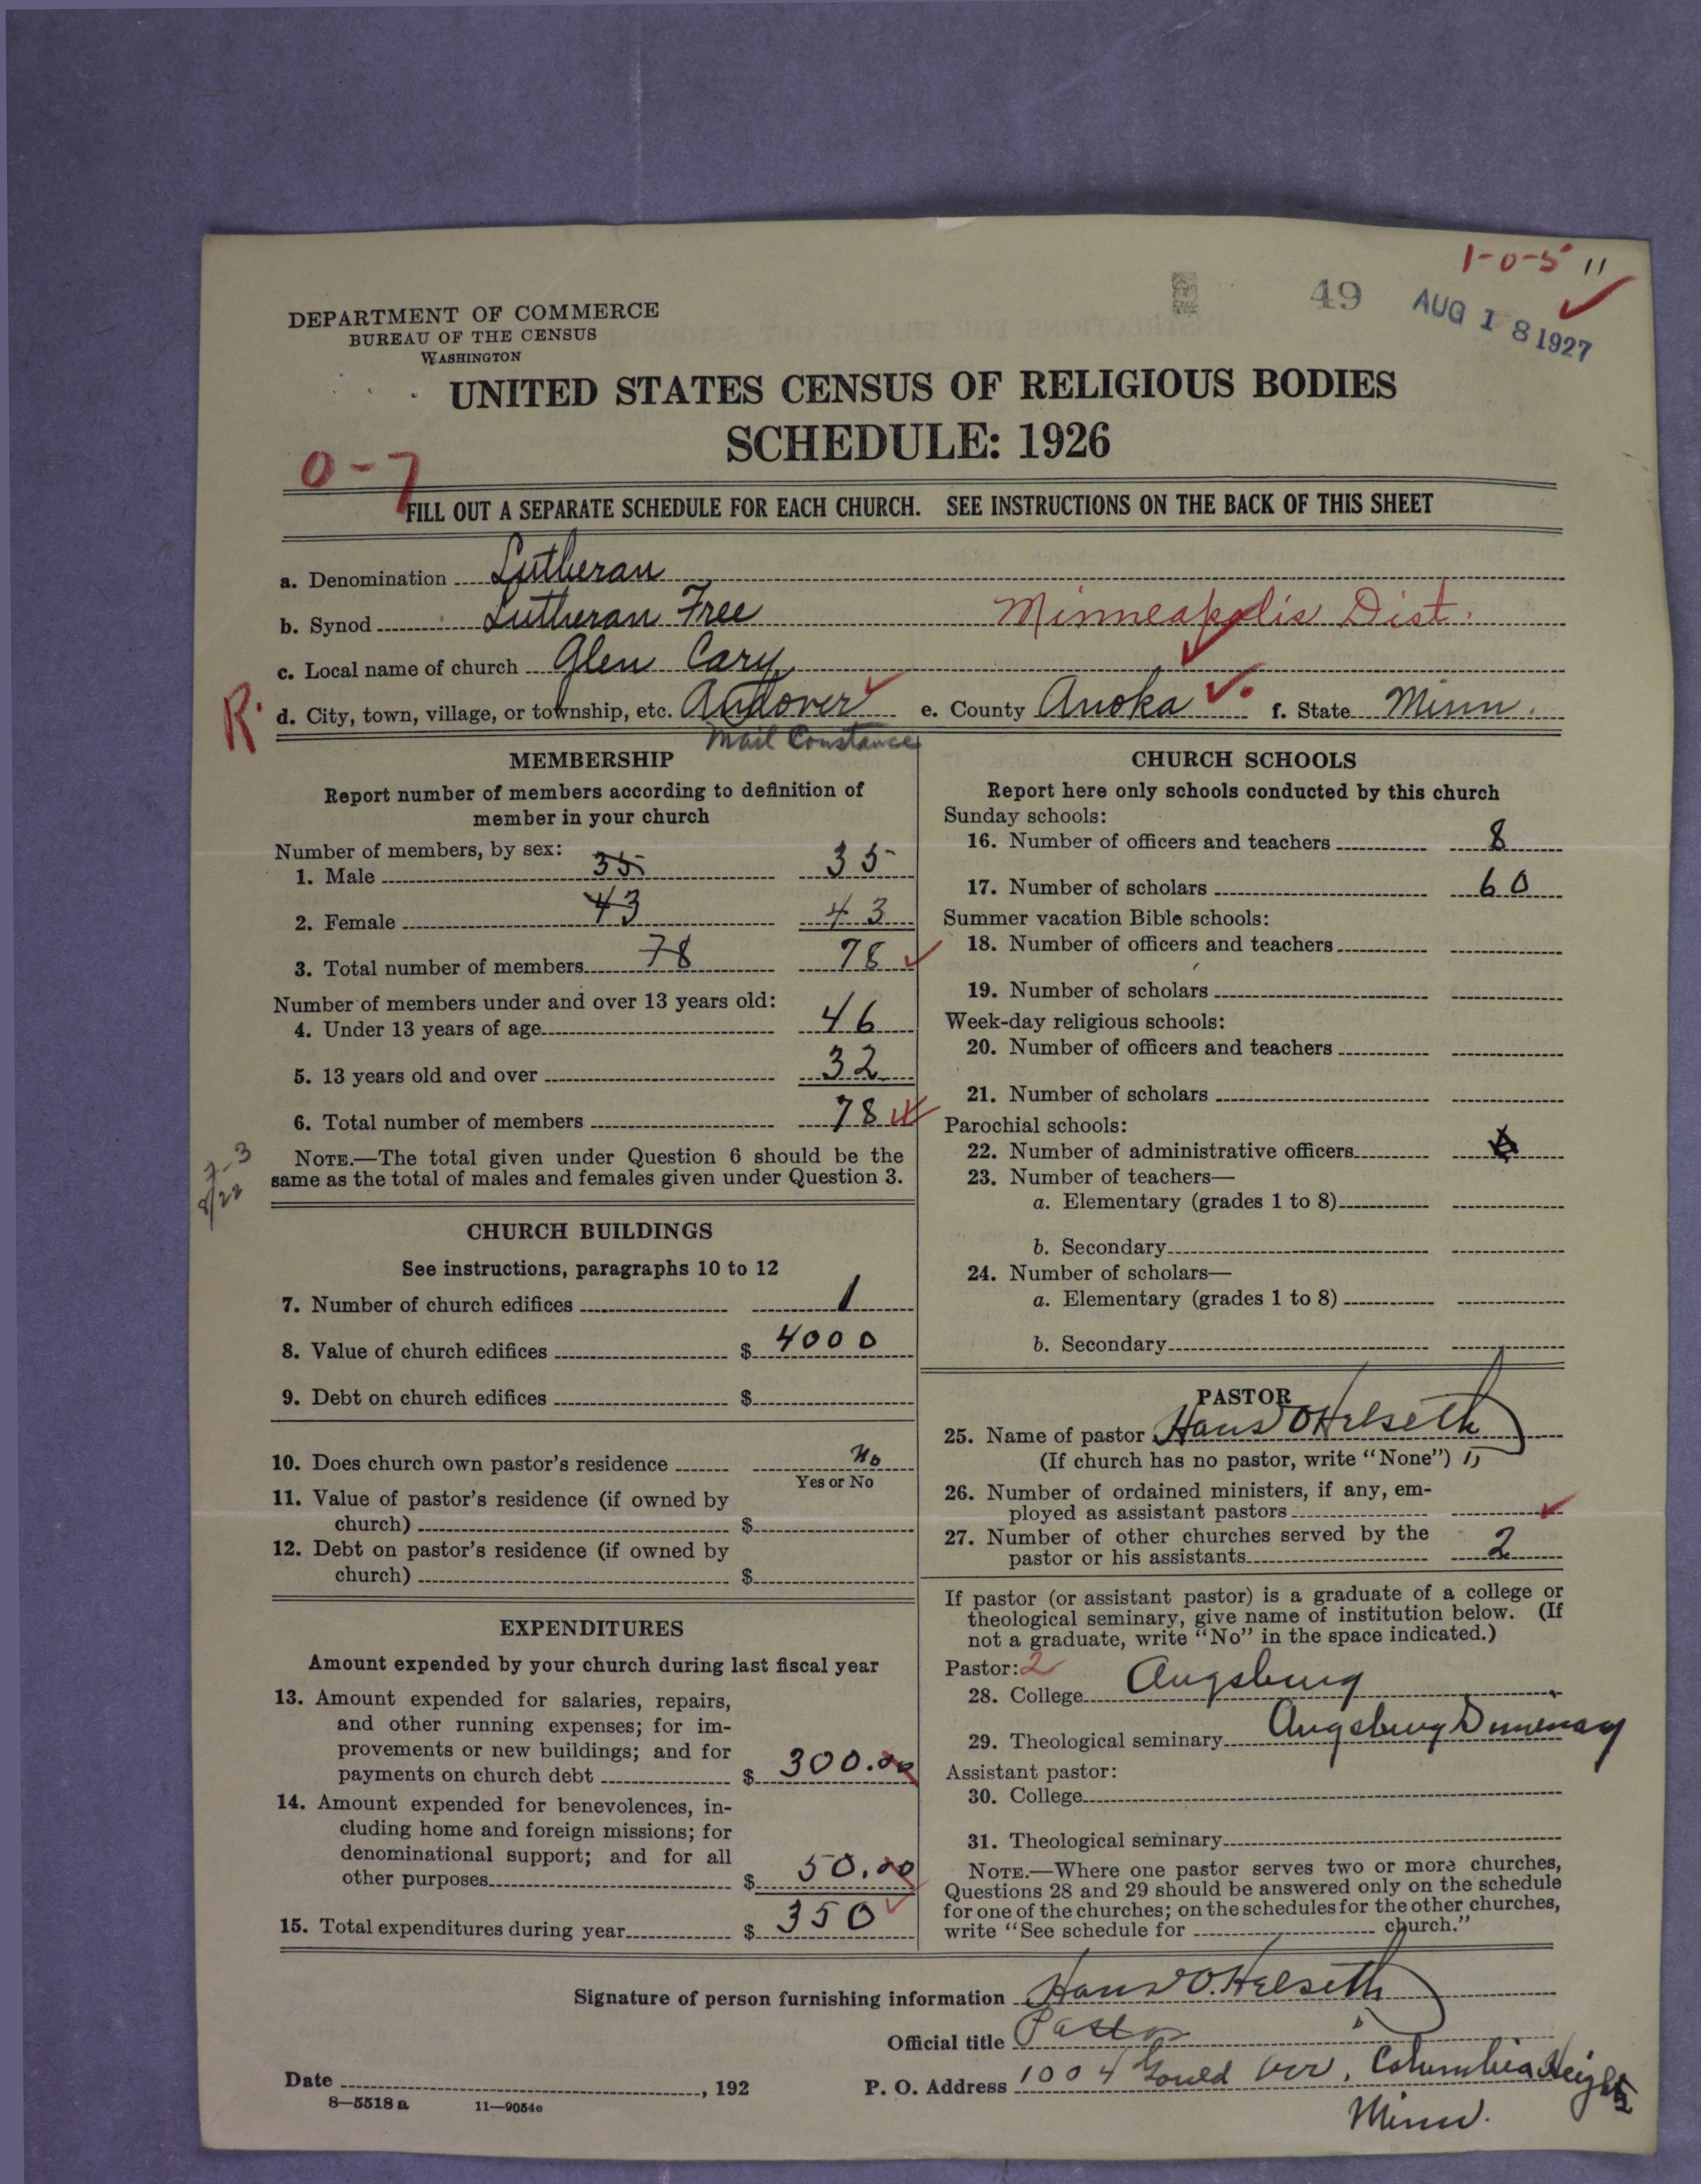 1-0-5 11
49 AUG 18 1927
DEPARTMENT OF COMMERCE
BUREAU OF THE CENSUS
WASHINGTON
UNITED STATES CENSUS OF RELIGIOUS BODIES
SCHEDULE: 1926
0-7
FILL OUT A SEPARATE SCHEDULE FOR EACH CHURCH. SEE INSTRUCTIONS ON THE BACK OF THIS SHEET
a. Denomination Lutheran
b. Synod Lutheran Free Minneapolis Dist.
c. Local name of church Glen Cary
R. d. City, town, village, or township, etc. Andover e. County Anoka f. State Minn.
Mail Constance
MEMBERSHIP
Report number of members according to definition of
member in your church
Number of members, by sex:
1. Male 35 35
2. Female 43 43
3. Total number of members 78 78
Number of members under and over 13 years old:
4. Under 13 years of age 46
5. 13 years old and over 32
6. Total number of members 78
NOTE.—The total given under Question 6 should be the
same as the total of males and females given under Question 3.
8/22
CHURCH BUILDINGS
See instructions, paragraphs 10 to 12
7. Number of church edifices 1
8. Value of church edifices $ 4000
9. Debt on church edifices $
10. Does church own pastor's residence No
Yes or No
11. Value of pastor's residence (if owned by
church) $
12. Debt on pastor's residence (if owned by
church) $
EXPENDITURES
Amount expended by your church during last fiscal year
13. Amount expended for salaries, repairs,
and other running expenses; for im-
provements or new buildings; and for
payments on church debt $ 300.00
14. Amount expended for benevolences, in-
cluding home and foreign missions; for
denominational support; and for all
other purposes $ 50.00
15. Total expenditures during year $ 350
CHURCH SCHOOLS
Report here only schools conducted by this church
Sunday schools:
16. Number of officers and teachers 8
17. Number of scholars 60
Summer vacation Bible schools:
18. Number of officers and teachers
19. Number of scholars
Week-day religious schools:
20. Number of officers and teachers
21. Number of scholars
Parochial schools:
22. Number of administrative officers
23. Number of teachers—
a. Elementary (grades 1 to 8)
b. Secondary
24. Number of scholars—
a. Elementary (grades 1 to 8)
b. Secondary
PASTOR
25. Name of pastor Hans O Helseth
(If church has no pastor, write "None")
26. Number of ordained ministers, if any, em-
ployed as assistant pastors
27. Number of other churches served by the
pastor or his assistants 2
If pastor (or assistant pastor) is a graduate of a college or
theological seminary, give name of institution below. (If
not a graduate, write "No" in the space indicated.)
Pastor: 2
28. College Augsburg
29. Theological seminary Augsburg Seminary
Assistant pastor:
30. College
31. Theological seminary
NOTE.—Where one pastor serves two or more churches,
Questions 28 and 29 should be answered only on the schedule
for one of the churches; on the schedules for the other churches,
write "See schedule for church."
Signature of person furnishing information Hans O. Helseth
Official title Pastor
Date , 192 P. O. Address 1004 Gould Ave, Columbia Heights
Minn.
8—5518 a 11—9054e